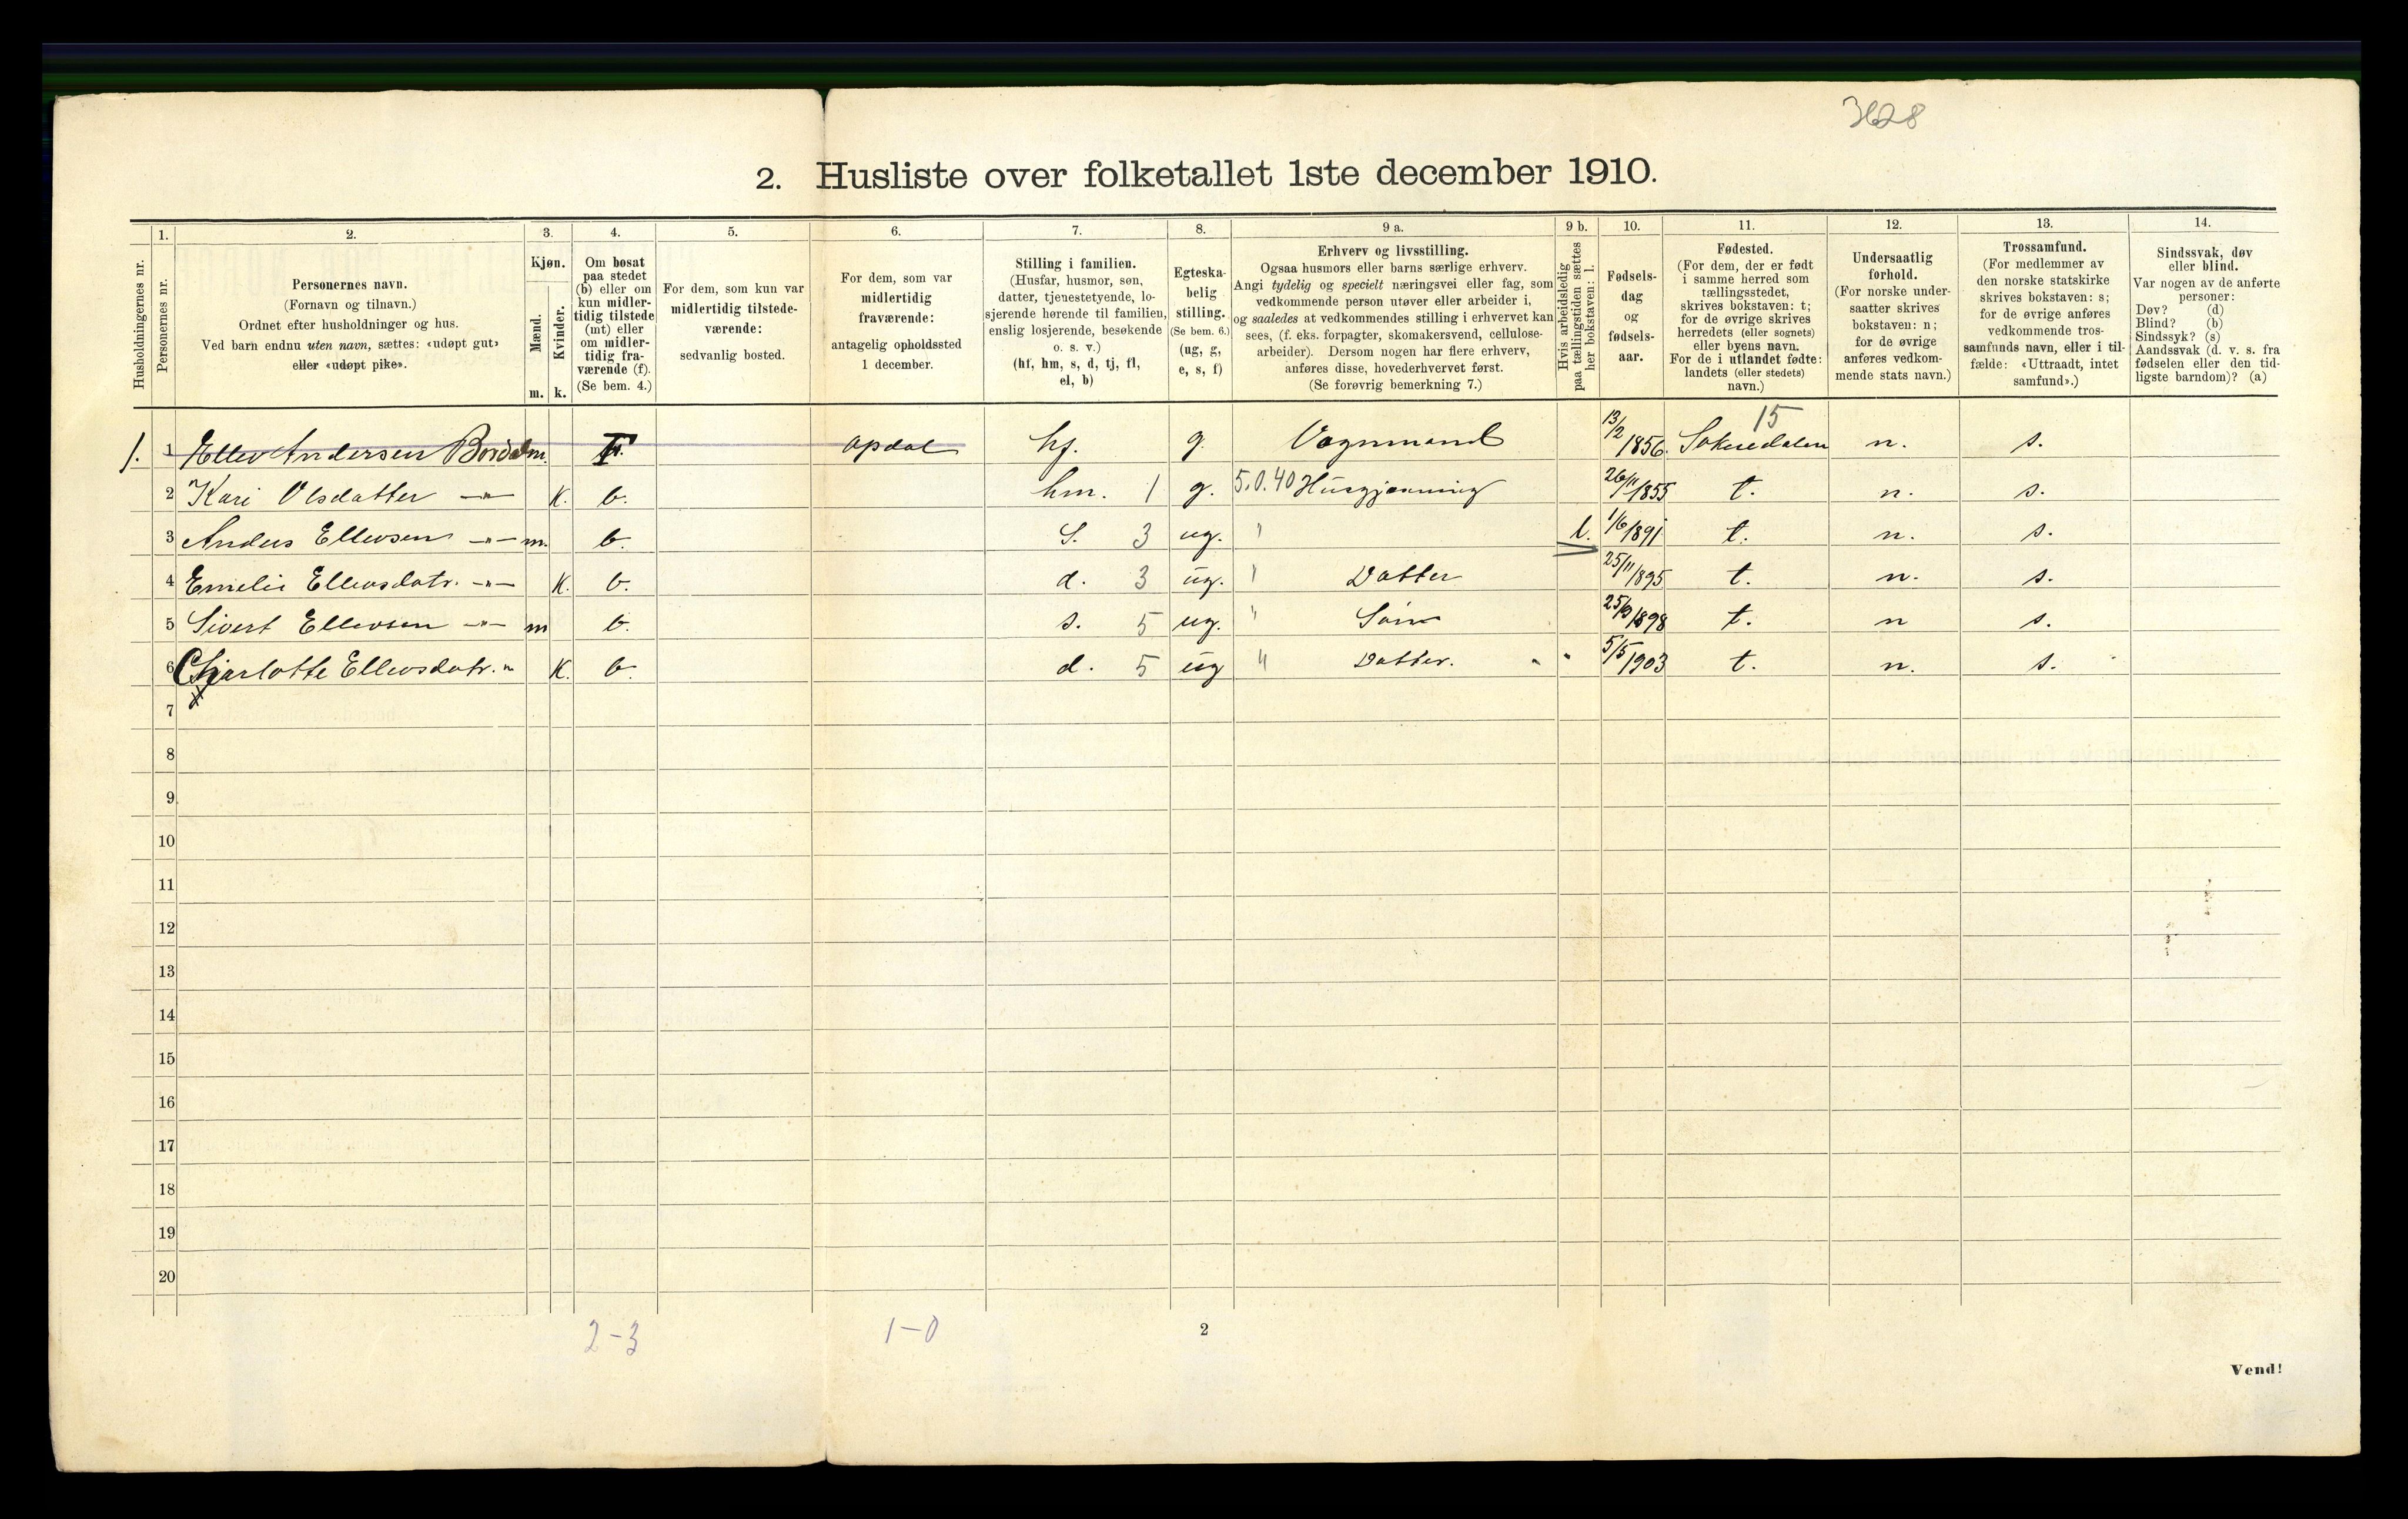 3628
2. Husliste over folketallet 1ste december 1910.
Husholdningernes nr.
1. Personernes nr.
2. Personernes navn. (Fornavn og tilnavn.) Ordnet efter husholdninger og hus. Ved barn endnu uten navn, sættes: «udøpt gut» eller «udøpt pike».
3. Kjøn. Mænd. m. Kvinder. k.
4. Om bosat paa stedet (b) eller om kun midlertidig tilstede (mt) eller om midlertidig fraværende (f). (Se bem. 4.)
5. For dem, som kun var midlertidig tilstedeværende: sedvanlig bosted.
6. For dem, som var midlertidig fraværende: antagelig opholdssted 1 december.
7. Stilling i familien. (Husfar, husmor, søn, datter, tjenestetyende, losjerende hørende til familien, enslig losjerende, besøkende o. s. v.) (hf, hm, s, d, tj, fl, el, b)
8. Egteskabelig stilling. (Se bem. 6.) (ug, g, e, s, f)
9 a. Erhverv og livsstilling. Ogsaa husmors eller barns særlige erhverv. Angi tydelig og specielt næringsvei eller fag, som vedkommende person utøver eller arbeider i, og saaledes at vedkommendes stilling i erhvervet kan sees, (f. eks. forpagter, skomakersvend, cellulosearbeider). Dersom nogen har flere erhverv, anføres disse, hovederhvervet først. (Se forøvrig bemerkning 7.)
9 b. Hvis arbeidsledig paa tællingstiden sættes her bokstaven: l.
10. Fødselsdag og fødselsaar.
11. Fødested. (For dem, der er født i samme herred som tællingsstedet, skrives bokstaven: t; for de øvrige skrives herredets (eller sognets) eller byens navn. For de i utlandet fødte: landets (eller stedets) navn.)
12. Undersaatlig forhold. (For norske undersaatter skrives bokstaven: n; for de øvrige anføres vedkommende stats navn.)
13. Trossamfund. (For medlemmer av den norske statskirke skrives bokstaven: s; for de øvrige anføres vedkommende trossamfunds navn, eller i tilfælde: «Uttraadt, intet samfund».)
14. Sindssvak, døv eller blind. Var nogen av de anførte personer: Døv? (d) Blind? (b) Sindssyk? (s) Aandssvak (d. v. s. fra fødselen eller den tidligste barndom)? (a)
15
1. 1 Ellev Andersen m. F. opdal hf. g. Vognmand 13/2 1856. n. s.
2 Kari Olsdatter -"- K. b. hm. 1 g. 5.0.40 Husgjerning 26/11 1855 t. n. s.
3 Anders Ellevsen -"- m. b. S. 3 ug. " l. 1/6 1891 t. n. s.
4 Emelie Ellevsdatr. -"- K. b. d. 3 ug. " Datter 25/11 1895 t. n. s.
5 Sivert Ellevsen -"- m b. s. 5 ug. " Søn 1898 t. n s.
6 Charlotte Ellevsdatr. " K. b. d. 5 ug " Datter. 5/5 1903 t. n. s.
7
8
9
10
11
12
13
14
15
16
17
18
19
20
2-3 1-0 2
Vend!